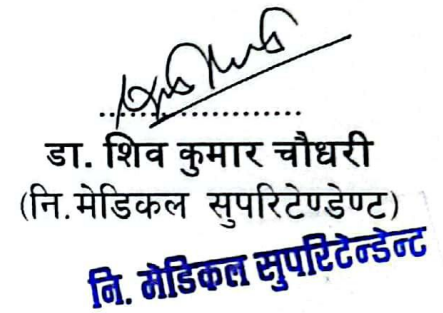 ....................
डा. शिव कुमार चौधरी
(नि.मेडिकल सुपरिटेण्डेण्ट)
नि. मेडिकल सुपरिटेन्डेन्ट